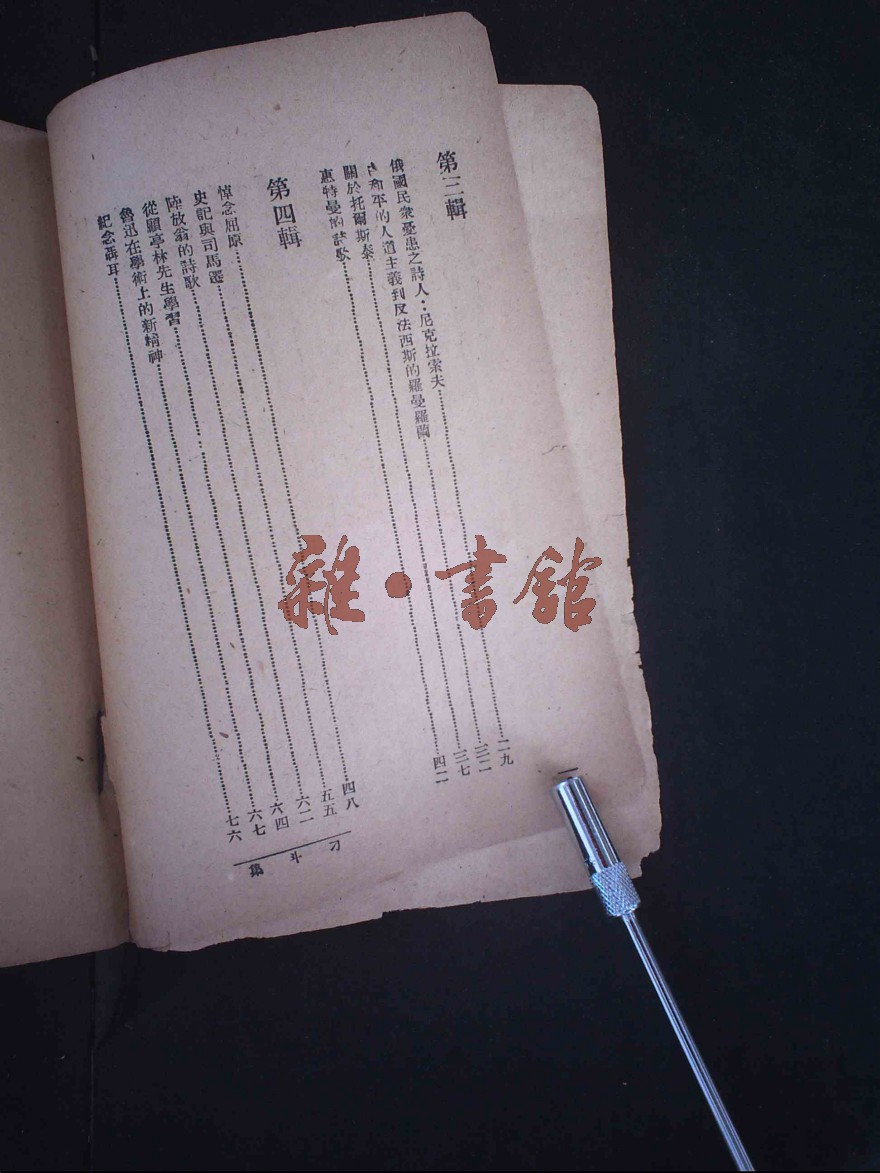 第三輯
俄國民衆憂患之詩人：尼克拉索夫……二九
和平的人道主義到反法西斯的羅曼羅蘭……三二
關於托爾斯泰……三七
惠特曼的詩歌……四二
第四輯
悼念屈原……四八
史記與司馬遷……五五
陸放翁的詩歌……六二
從顧亭林先生學習……六四
魯迅在學術上的新精神……六七
紀念聶耳……七六
刁斗集
一
雜·書館